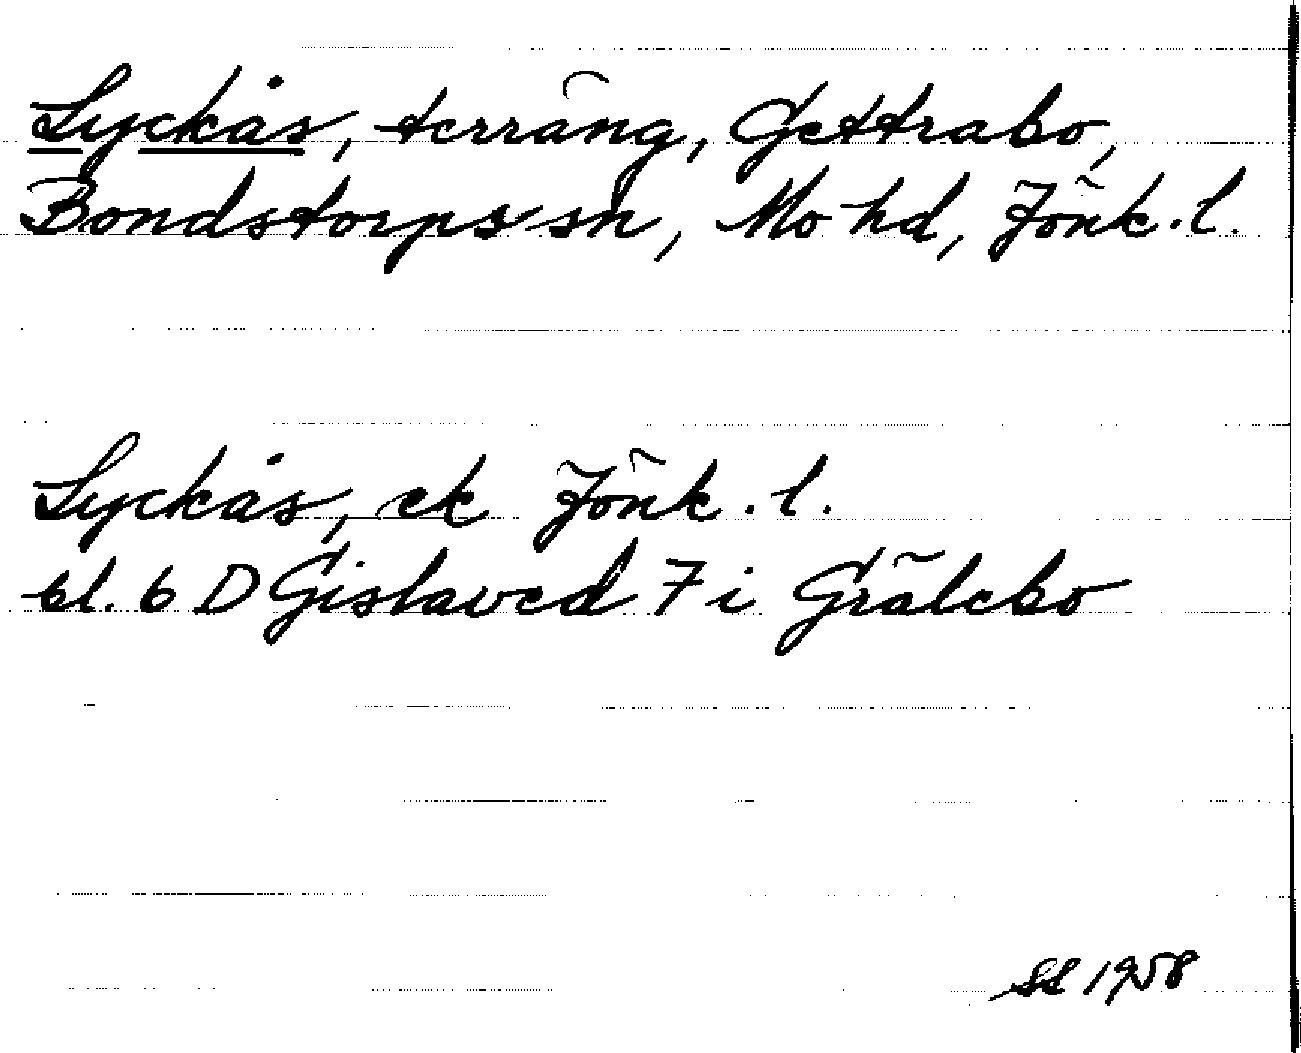 Lyckås, terräng, Gettrabo,
Bondstorps sn, Mo hd, Jönk. l.
Lyckås, ek Jönk. l.
bl. 6 D Gislaved 7 i Grälebo
SL 1958